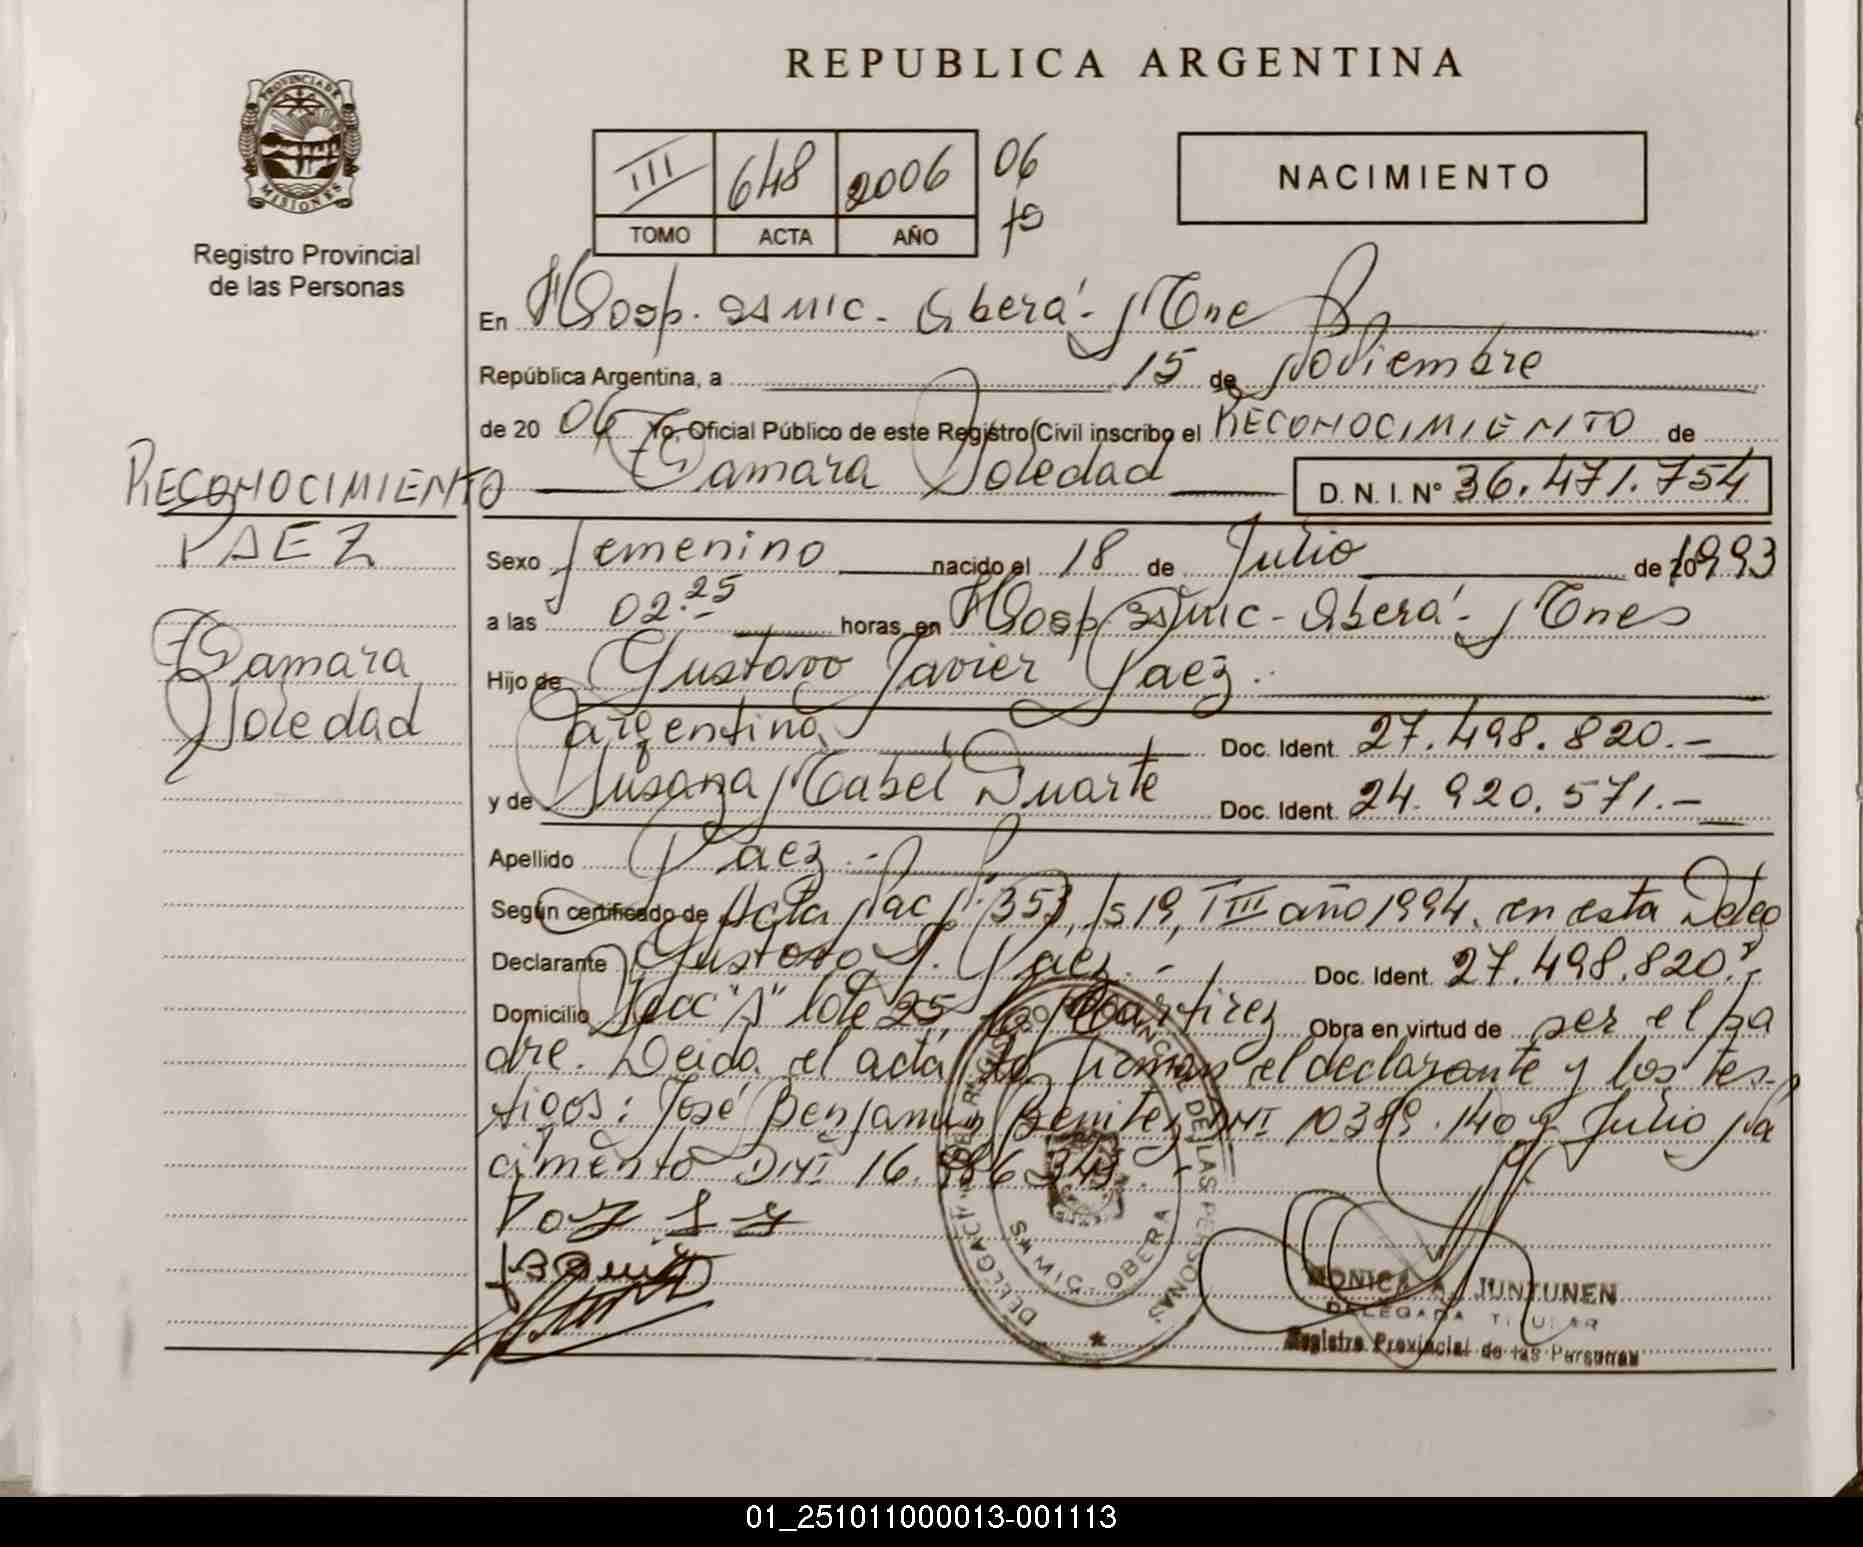 REPUBLICA ARGENTINA
PROVINCIA DE
MISIONES
Registro Provincial
de las Personas
III 648 2006 06
TOMO ACTA AÑO
NACIMIENTO
En Hosp. Samic - Oberá - Mnes
República Argentina, a 15 de Noviembre
de 20 06 Yo, Oficial Público de este Registro Civil inscribo el RECONOCIMIENTO de
Tamara Soledad D. N. I. Nº 36.471.754
RECONOCIMIENTO
PAEZ
Tamara
Soledad
Sexo femenino nacido el 18 de Julio de 20 1993
a las 02.25 horas, en Hosp Samic - Oberá - Mnes
Hijo de Gustavo Javier Paez.
argentino, Doc. Ident. 27.498.820.-
y de Susana Mabel Duarte Doc. Ident. 24.920.571.-
Apellido Paez.-
Según certificado de Acta Nac Nº 353, fs 19, T III año 1994, en esta Deleg
Declarante Gustavo J. Paez.- Doc. Ident. 27.498.820.
Domicilio Secc "A" lote 25, Martirez Obra en virtud de ser el pa
dre. Leida el acta la firman el declarante y los tes-
tigos: José Benjamin Benitez DNI 10389.140 y Julio Na
cimento DNI 16.
DELEGACION
DE LAS PERSONAS
SAMIC. OBERA
MONICA A. JUNTUNEN
DELEGADA TITULAR
Registro Provincial de las Personas
01_251011000013-001113